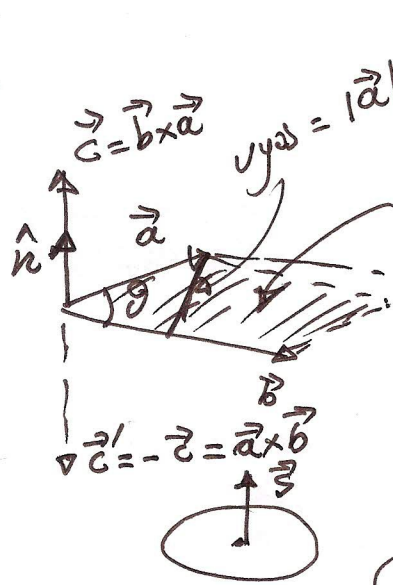 c⃗ = b⃗ × a⃗
υψος = |a⃗|
a⃗
n̂
θ
b⃗
c⃗' = -c⃗ = a⃗ × b⃗